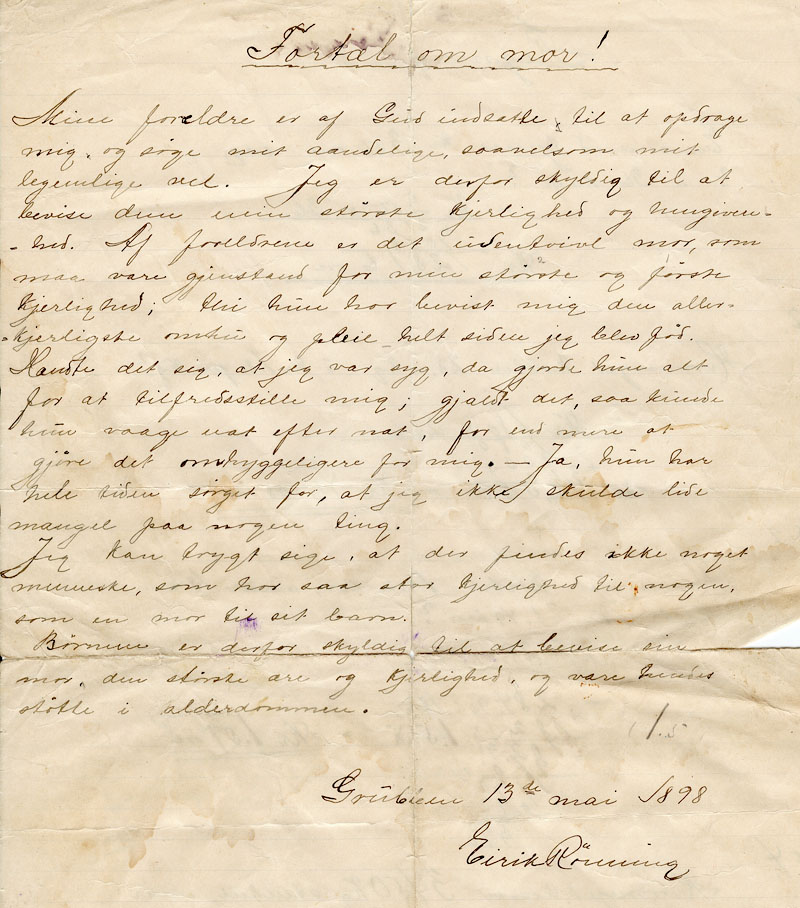 Fortæl om mor!
Mine foreldre er af Gud indsatte til at opdrage
mig, og søge mit aandelige, saavelsom mit
legemlige vel. Jeg er derfor skyldig til at
bevise dem min största kjerlighed og hengiven-
-hed. Af foreldrene er det udentvivl mor, som
maa være gjenstand for min störste og förste
kjerlighed; thi hun har bevist mig den aller-
-kjerligste omhu og pleie helt siden jeg blev föd.
Hændte det sig, at jeg var syg, da gjorde hun alt
for at tilfredsstille mig; gjaldt det, saa kunde
hun vaage nat efter nat, for end mere at
gjöre det omhyggeligere for mig. — Ja, hun har
hele tiden sörget for, at jeg ikke skulde lide
mangel paa nogen ting.
Jeg kan trygt sige, at der findes ikke noget
menneske, som har saa stor kjerlighed til nogen,
som en mor til sit barn.
Börnene er derfor skyldig til at bevise sin
mor, den störste ære og kjerlighed, og være hendes
stötte i alderdommen.
1.5
13de mai 1898
Eirik Rönning